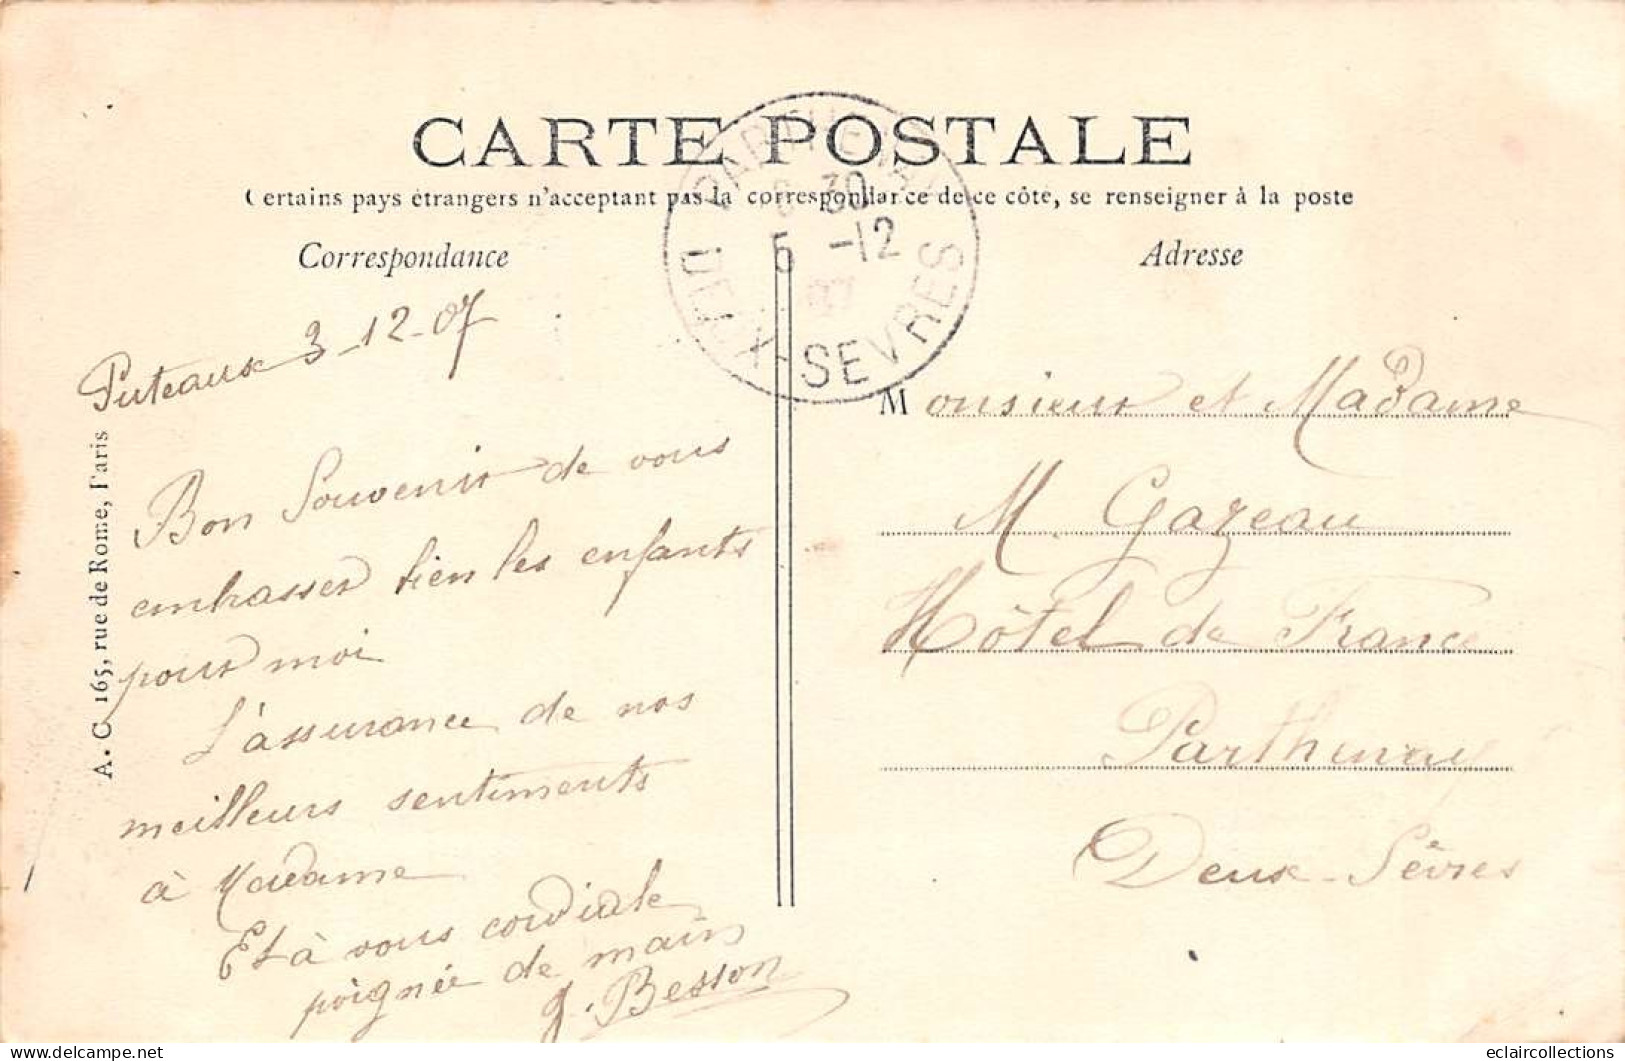 CARTE POSTALE
Certains pays étrangers n'acceptant pas la correspondance de ce côté, se renseigner à la poste
Correspondance
Adresse
PARTHENAY
30
5 -12
07
DEUX-SEVRES
Puteaux 3-12-07
Bon Souvenir de vous
embrasser bien les enfants
pour moi
L'assurance de nos
meilleurs sentiments
à Madame
Et à vous cordiale
poignée de main
G. Besson
Monsieur et Madame
M. Gazeau
Hôtel de France
Parthenay
Deux-Sèvres
A. C. 165, rue de Rome, Paris
eclaircollections